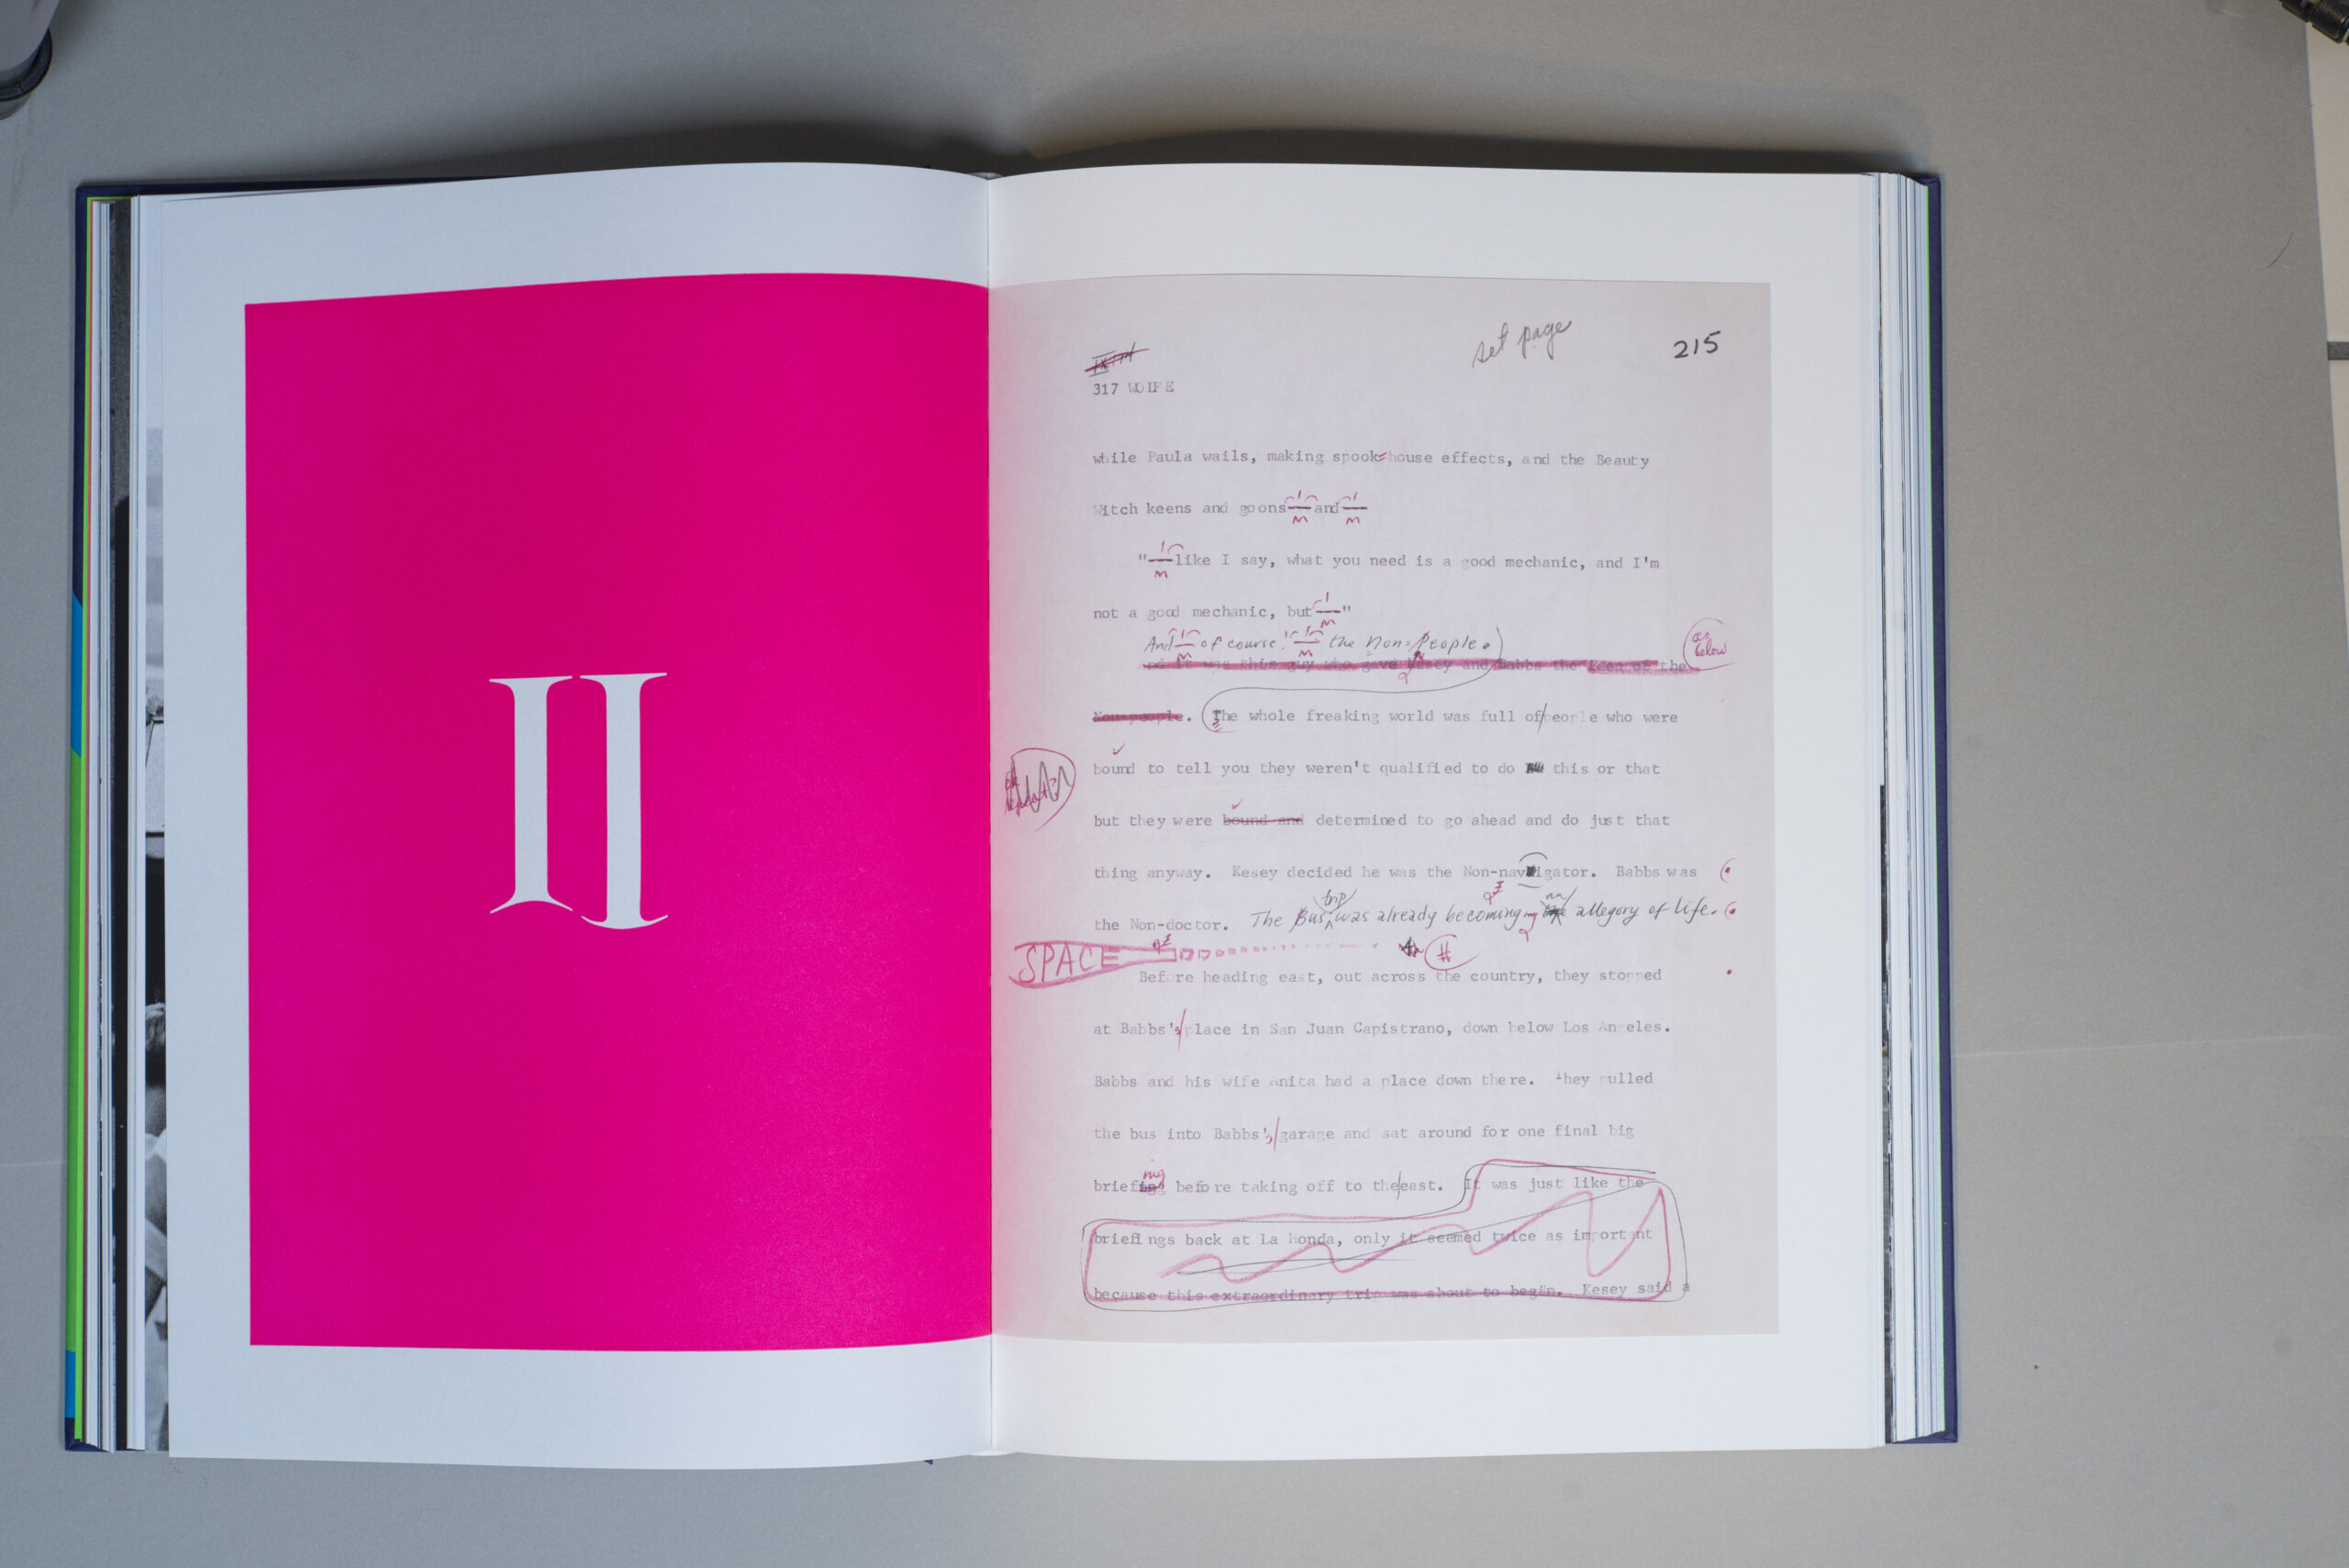 II
set page
215
317 WOLFE
while Paula wails, making spook house effects, and the Beauty
Witch keens and goons — and —
"— like I say, what you need is a good mechanic, and I'm
not a good mechanic, but —"
And — of course! — the Non-People.
as below
And it was this guy who gave Kesey and Babbs the keen of the
Non-people. The whole freaking world was full of people who were
bound to tell you they weren't qualified to do this or that
but they were bound and determined to go ahead and do just that
thing anyway. Kesey decided he was the Non-navigator. Babbs was
trip an
the Non-doctor. The Bus was already becoming allegory of life.
SPACE #
Before heading east, out across the country, they stopped
at Babbs's place in San Juan Capistrano, down below Los Angeles.
Babbs and his wife Anita had a place down there. They pulled
the bus into Babbs's garage and sat around for one final big
ing
briefing before taking off to the east. It was just like the
briefings back at La Honda, only it seemed twice as important
because this extraordinary trip was about to begin. Kesey said a